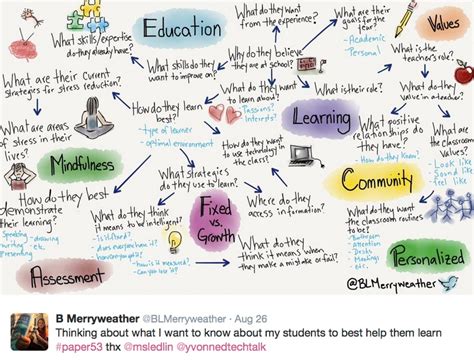 What do they want
from the experience?
What are their
goals for the
year?
- Academic
- Personal
Values
What skills/expertise
do they already have?
Education
What are their current
strategies for stress reduction?
What skills do they
want to improve on?
Why do they believe
they are at school?
What is the
teacher's role?
What do they want
to learn about?
- Passions?
- Interests?
What is their role?
What do they
value in a teacher?
How do they learn
best?
- type of learner
- optimal environment
Learning
What are areas
of stress in their
lives?
How do they want
to use technology in
the class?
What positive
relationships do
they have?
- How do they know?
What are
the classroom
values?
- Look like
- Sound like
- feel like
Mindfulness
What strategies
do they use to learn?
Community
How do they best
demonstrate
their learning?
Speaking
drawing
Writing
etc.
Presenting
What do they think
it means to be intelligent?
- is it fixed?
- does everyone have it?
- how is it measured?
- Can you lose it?
Fixed
vs.
Growth
Where do they
access information?
What do they want
the classroom routines
to be?
- Bathroom
- Attention
- Desks
- Meetings
- etc.
What do they
think it means when
they make a mistake or fail?
Personalized
Assessment
@BLMerryweather
B Merryweather @BLMerryweather · Aug 26
Thinking about what I want to know about my students to best help them learn
#paper53 thx @msledlin @yvonnedtechtalk